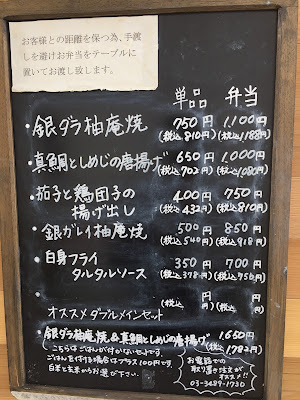 お客様との距離を保つ為、手渡
しを避けお弁当をテーブルに
置いてお渡し致します。
単品 弁当
・銀ダラ柚庵焼 750円 1,100円
(税込810円) (税込1188円)
・真鯛としめじの唐揚げ 650円 1,000円
(税込702円) (税込1080円)
・茄子と鶏団子の
揚げ出し 400円 750円
(税込432円) (税込810円)
・銀ガレイ柚庵焼 500円 850円
(税込540円) (税込918円)
・白身フライ
タルタルソース 350円 700円
(税込378円) (税込756円)
・ 円 円
(税込 円) (税込 円)
オススメダブルメインセット
・銀ダラ柚庵焼&真鯛としめじの唐揚げ 1,650円
(税込1782円)
こちらはごはんが付かないセットです。
ごはんを付ける場合はプラス100円です。
白米と玄米からお選び下さい。
お電話での
取り置き・注文が
オススメ!!
03-3689-1730